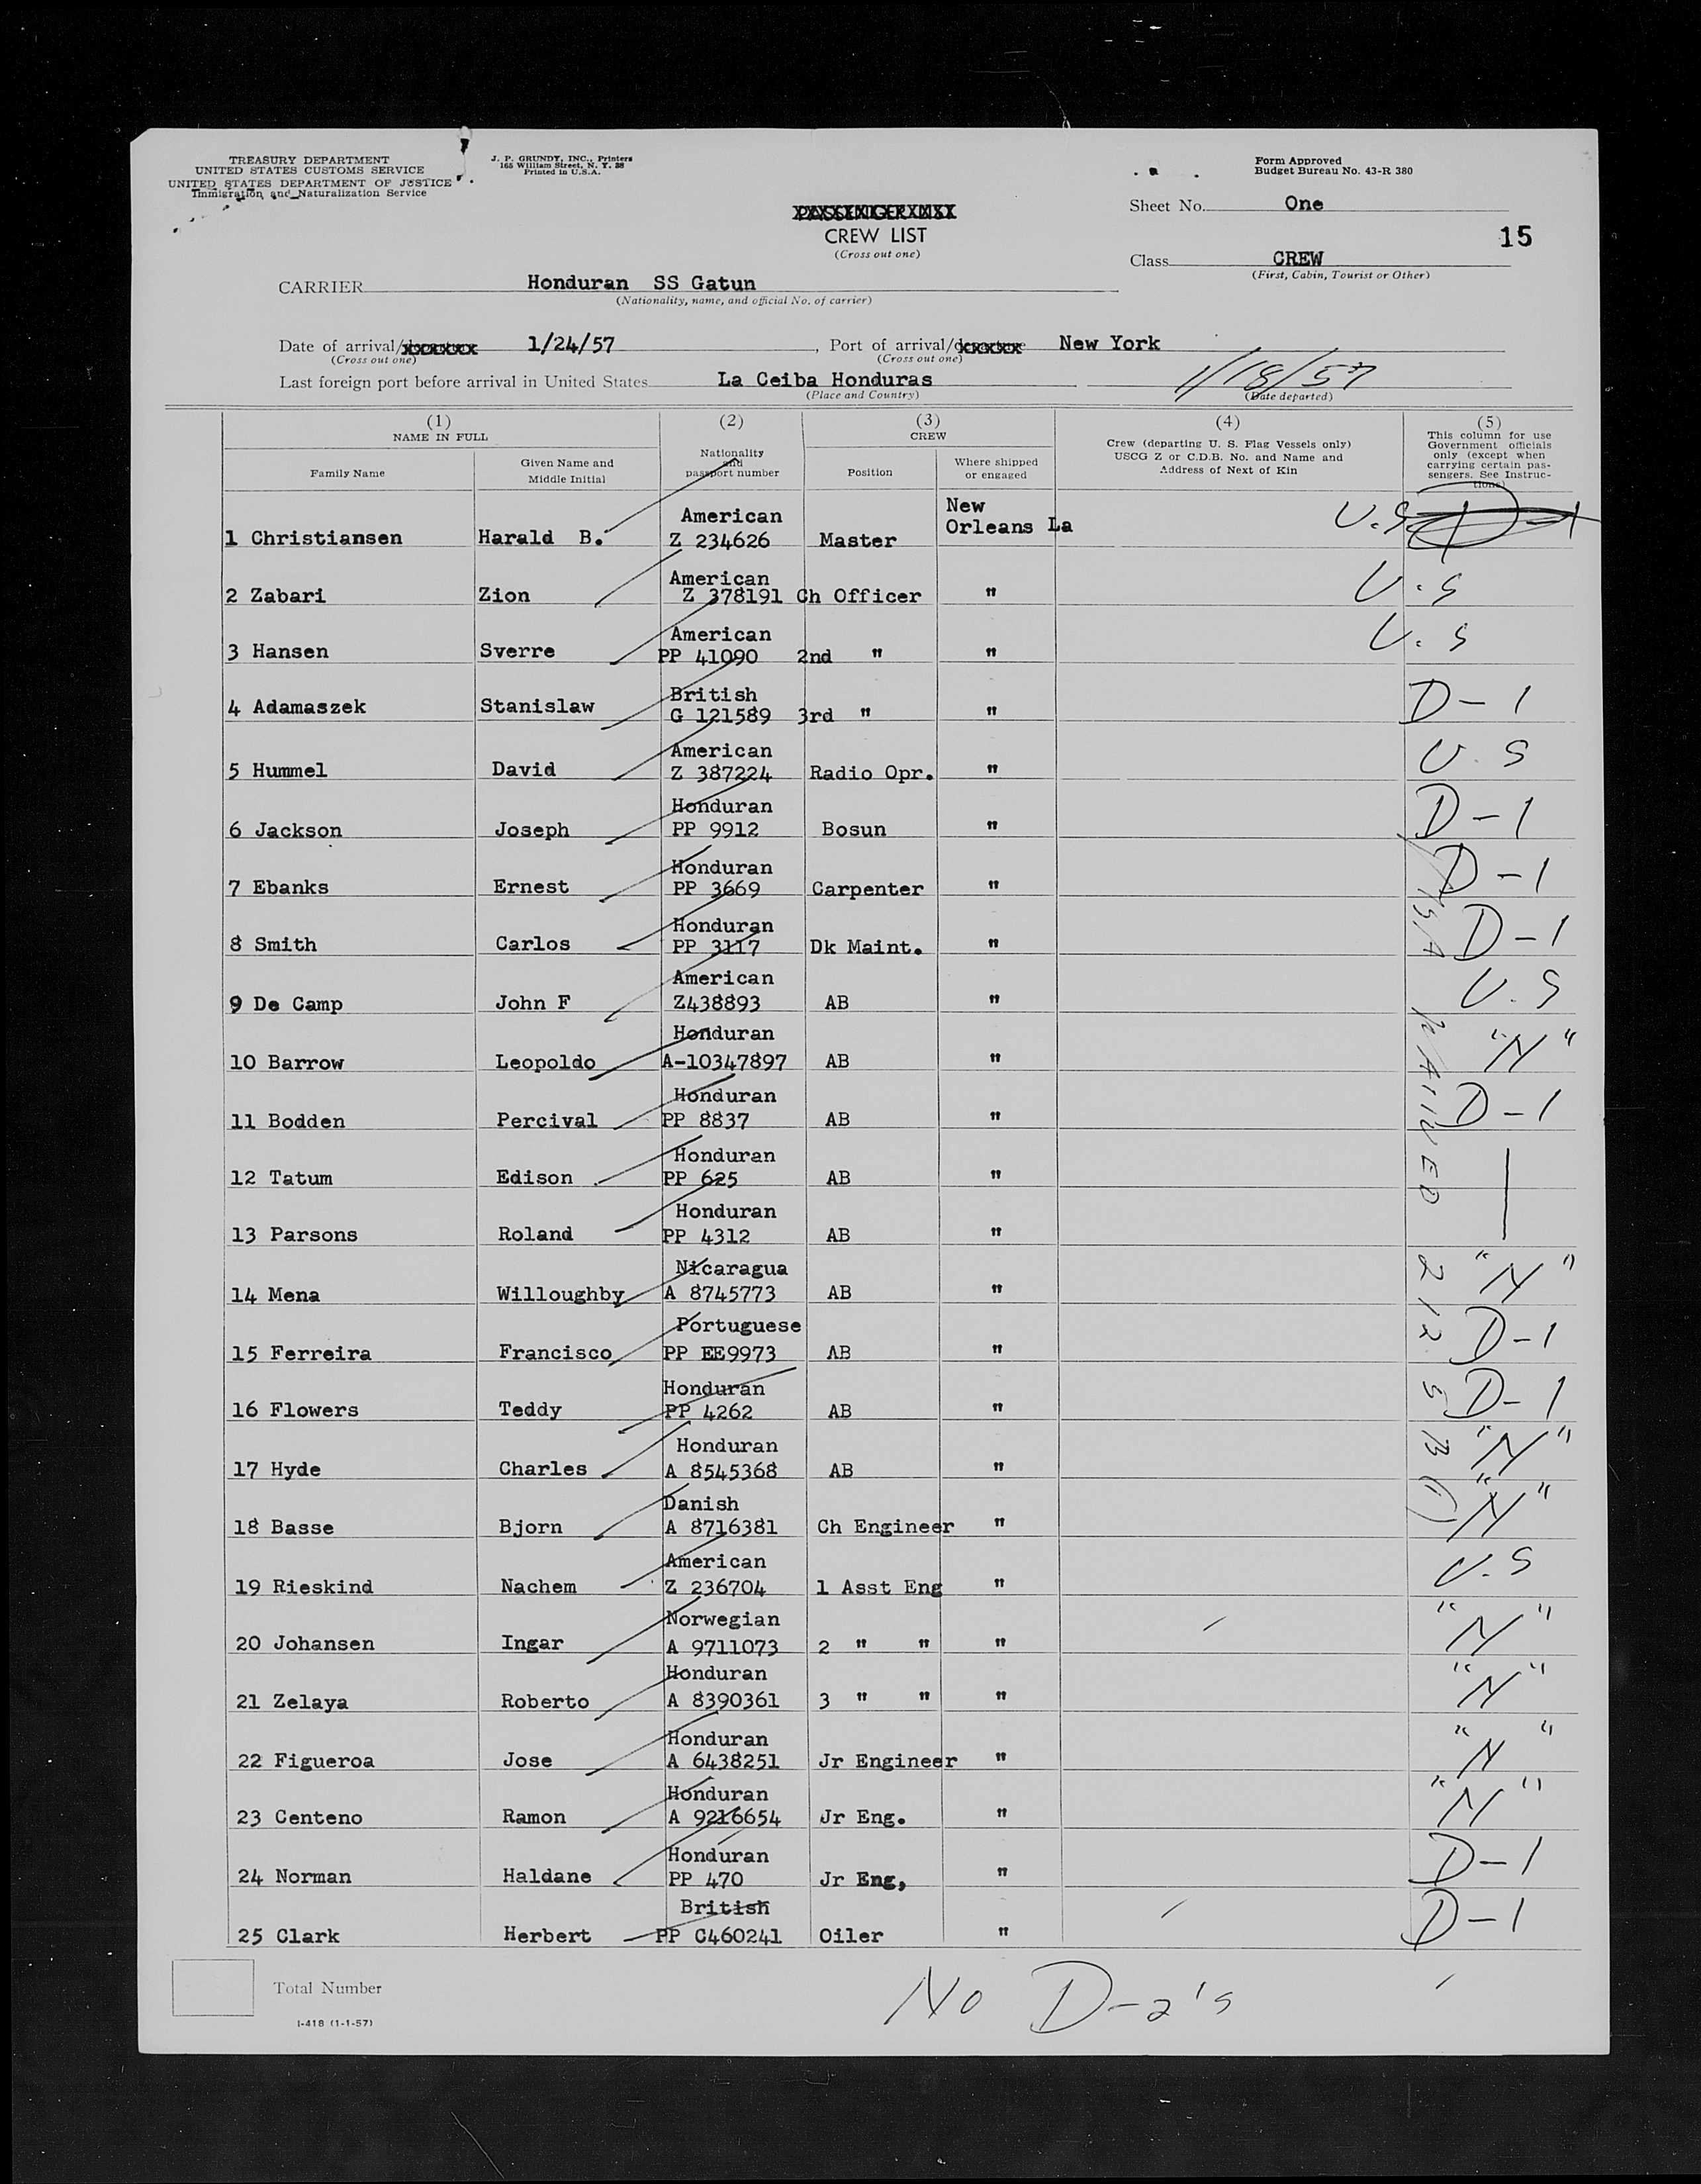 TREASURY DEPARTMENT
UNITED STATES CUSTOMS SERVICE
UNITED STATES DEPARTMENT OF JUSTICE
Immigration and Naturalization Service
J. P. GRUNDY, INC., Printers
165 William Street, N. Y. 38
Printed in U.S.A.
Form Approved
Budget Bureau No. 43-R 380
Sheet No. One
15
CREW LIST
(Cross out one)
Class CREW
(First, Cabin, Tourist or Other)
CARRIER Honduran SS Gatun
(Nationality, name, and official No. of carrier)
Date of arrival/ 1/24/57, Port of arrival/ New York
(Cross out one) (Cross out one)
Last foreign port before arrival in United States La Ceiba Honduras 1/18/57
(Place and Country) (Date departed)
(1) (2) (3) (4) (5)
NAME IN FULL
Family Name
Given Name and
Middle Initial
Nationality
and
passport number
CREW
Position
Where shipped
or engaged
Crew (departing U. S. Flag Vessels only)
USCG Z or C.D.B. No. and Name and
Address of Next of Kin
This column for use
Government officials
only (except when
carrying certain pas-
sengers. See Instruc-
tions)
American New
1 Christiansen Harald B. Z 234626 Master Orleans La U.S
American
2 Zabari Zion Z 378191 Ch Officer " U.S
American
3 Hansen Sverre PP 41090 2nd " " U.S
British
4 Adamaszek Stanislaw G 121589 3rd " " D-1
American
5 Hummel David Z 387224 Radio Opr. " U.S
Honduran
6 Jackson Joseph PP 9912 Bosun " D-1
Honduran
7 Ebanks Ernest PP 3669 Carpenter " D-1
Honduran
8 Smith Carlos PP 3117 Dk Maint. " D-1
American
9 De Camp John F Z438893 AB " U.S
Honduran
10 Barrow Leopoldo A-10347897 AB " "N"
Honduran
11 Bodden Percival PP 8837 AB " D-1
Honduran
12 Tatum Edison PP 625 AB "
Honduran
13 Parsons Roland PP 4312 AB "
Nicaragua
14 Mena Willoughby A 8745773 AB " "N"
Portuguese
15 Ferreira Francisco PP EE9973 AB " D-1
Honduran
16 Flowers Teddy PP 4262 AB " D-1
Honduran
17 Hyde Charles A 8545368 AB " "N"
Danish
18 Basse Bjorn A 8716381 Ch Engineer " "N"
American
19 Rieskind Nachem Z 236704 1 Asst Eng " U.S
Norwegian
20 Johansen Ingar A 9711073 2 " " " "N"
Honduran
21 Zelaya Roberto A 8390361 3 " " " "N"
Honduran
22 Figueroa Jose A 6438251 Jr Engineer " "N"
Honduran
23 Centeno Ramon A 9216654 Jr Eng. " "N"
Honduran
24 Norman Haldane PP 470 Jr Eng, " D-1
British
25 Clark Herbert PP C460241 Oiler " D-1
Total Number
I-418 (1-1-57)
No D-2's